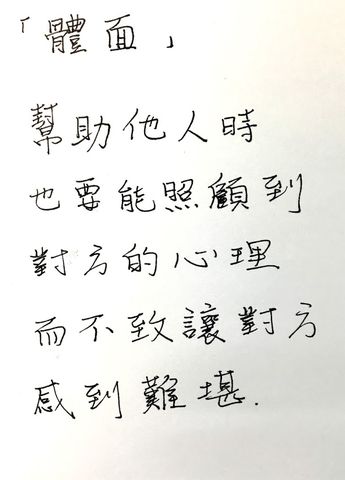 「體面」
幫助他人時
也要能照顧到
對方的心理
而不致讓對方
感到難堪.